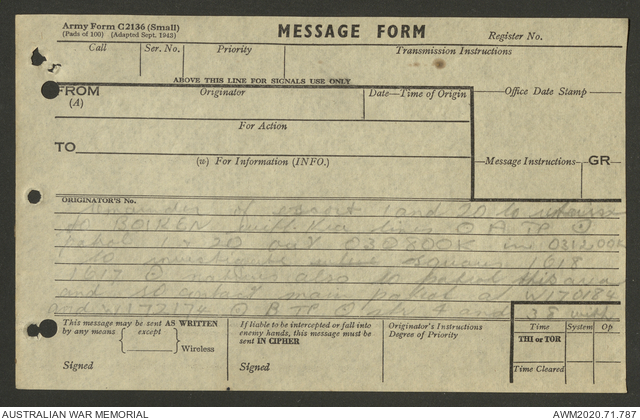 Army Form C2136 (Small)
(Pads of 100) (Adapted Sept. 1943)
MESSAGE FORM
Register No.
Call
Ser. No.
Priority
Transmission Instructions
ABOVE THIS LINE FOR SIGNALS USE ONLY
FROM
(A)
Originator
Date—Time of Origin
Office Date Stamp
For Action
TO
(w) For Information (INFO.)
Message Instructions
GR
ORIGINATOR'S No.
of escort and 20 to
to BOIKEN with
20 out 030800K in 031200K
to investigate 1618
1617 natives also to patrol this area
and contact patrol at 170184
and 177174 and 38 with
This message may be sent AS WRITTEN
by any means except
Wireless
Signed
If liable to be intercepted or fall into
enemy hands, this message must be
sent IN CIPHER
Signed
Originator's Instructions
Degree of Priority
Time
System
Op
THI or TOR
Time Cleared
AUSTRALIAN WAR MEMORIAL
AWM2020.71.787